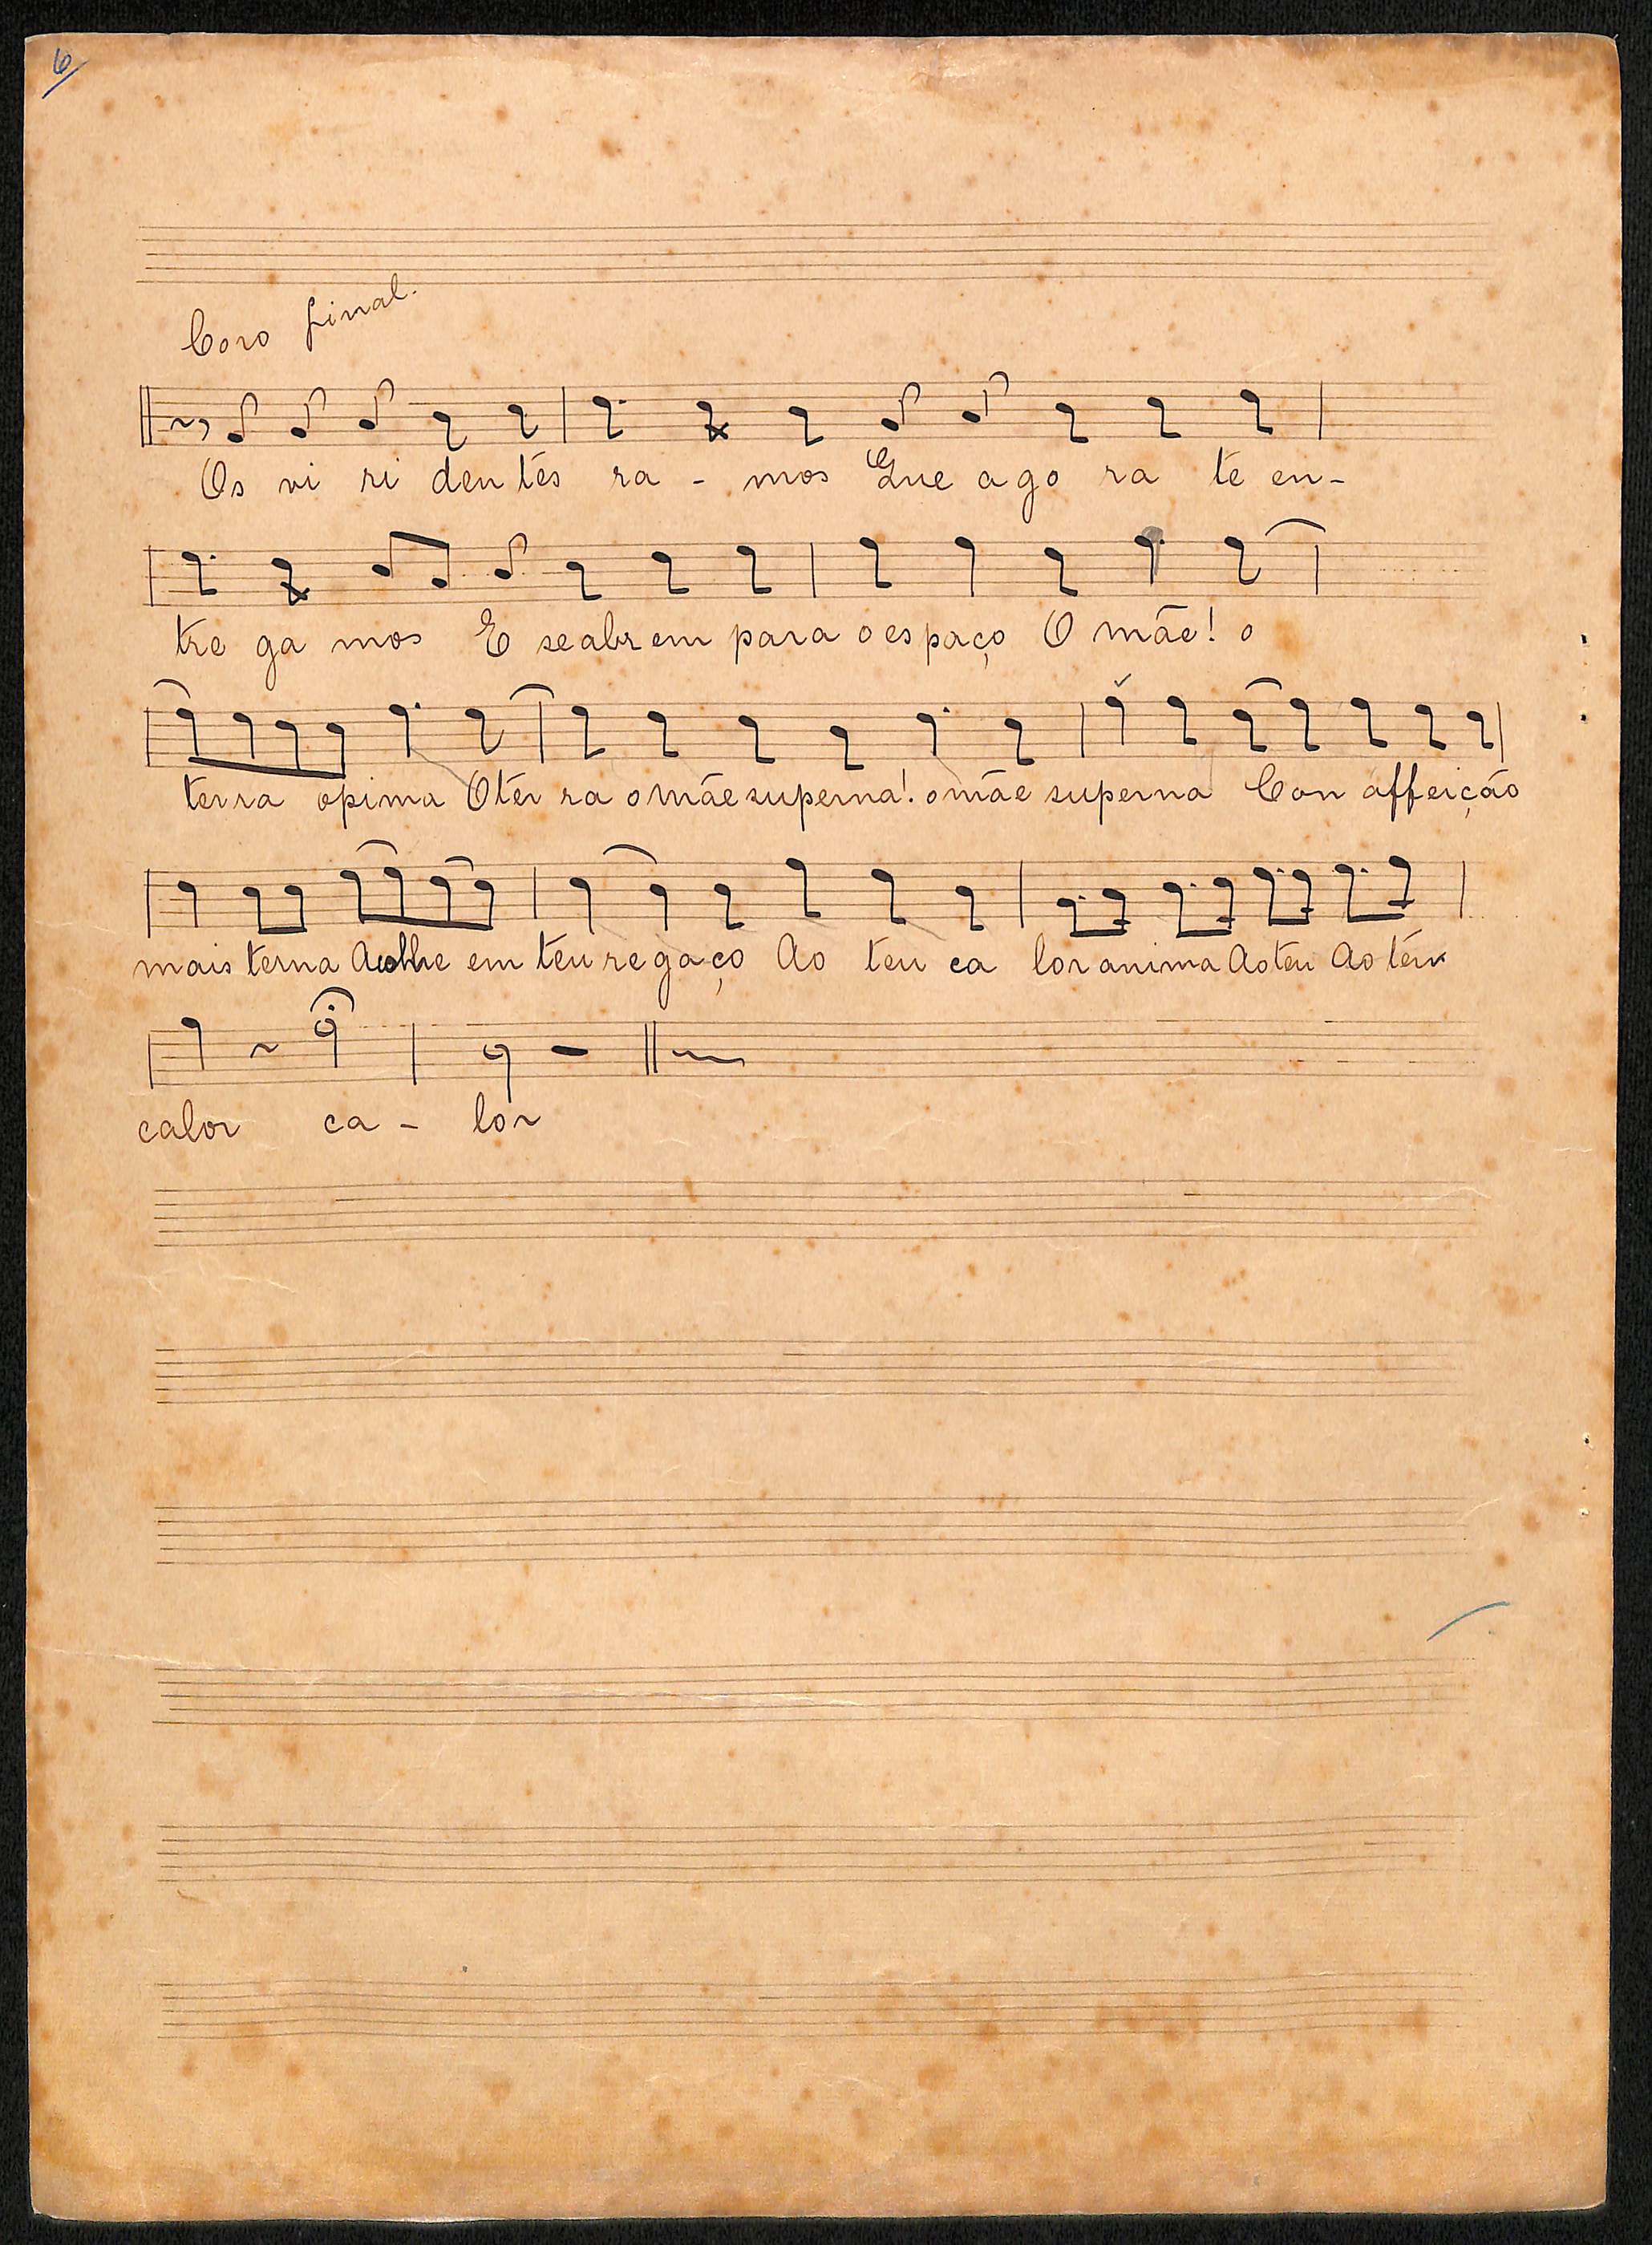 6
Coro final.
Os vi ri den tes ra - mos Que a go ra te en-
tre ga mos E se abr em para o espaço O mãe! o
terra opima O ter ra o mãe superna! o mãe superna Con affeição
mais terna Acolhe em teu regaço Ao teu ca lor anima Ao teu Ao teu
calor ca - lor